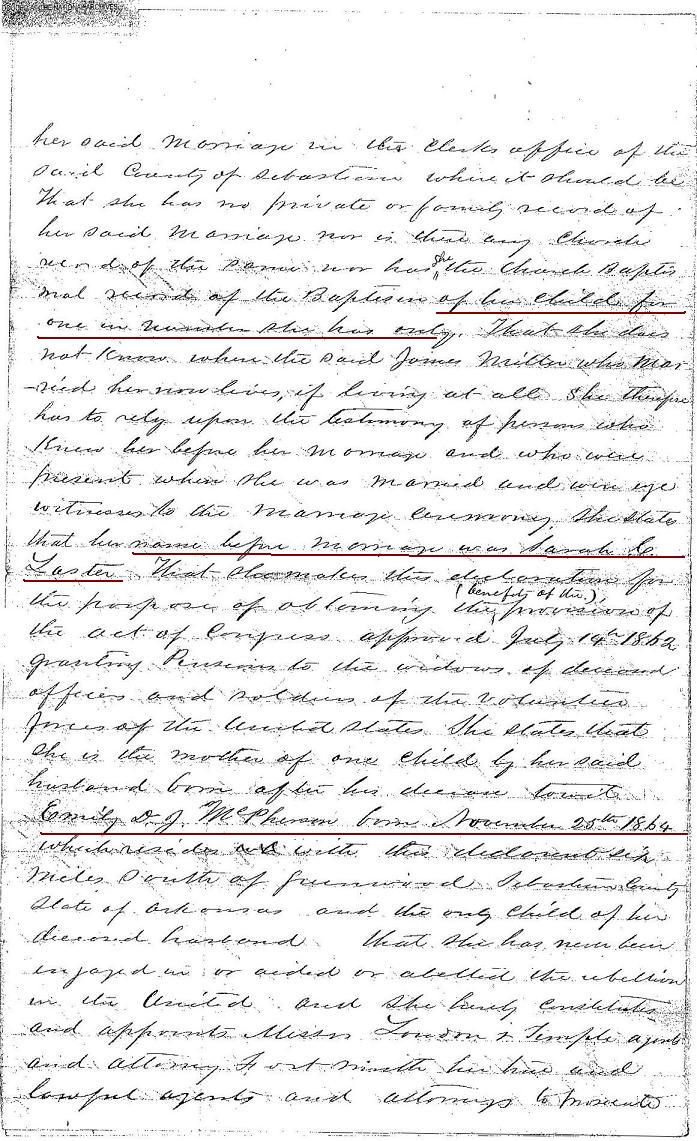 THE NATIONAL ARCHIVES
her said marriage in the Clerks office of the
said County of Sebastian where it should be
That she has no private or family record of
her said marriage nor is there any Church
record of the same nor has she the Church Baptis
mal record of the Baptism of her child for
one in number she has only. That she does
not know where the said James Miller who mar
-ried her now lives, if living at all She therefore
has to rely upon the testimony of persons who
knew her before her marriage and who were
present when she was married and were eye
witnesses to the marriage ceremony She states
that her name before marriage was Sarah C
Laster That she makes this declaration for
(benefits of the)
the purpose of obtaining the provision of
the act of Congress approved July 14th 1862
granting Pensions to the widows of deceased
officers and soldiers of the Volunteer
forces of the United States She states that
she is the mother of one child by her said
husband born after his decease towit
Emily D. J. McPherson born November 25th 1864
which resides with this declarent six
miles South of Greenwood Sebastian County
State of Arkansas and the only child of her
deceased husband that she has never been
engaged in or aided or abetted the rebellion
in the United and she hereby constitutes
and appoints Messrs London & Temple agents
and attorney Fort Smith her true and
lawful agents and attorneys to prosecute